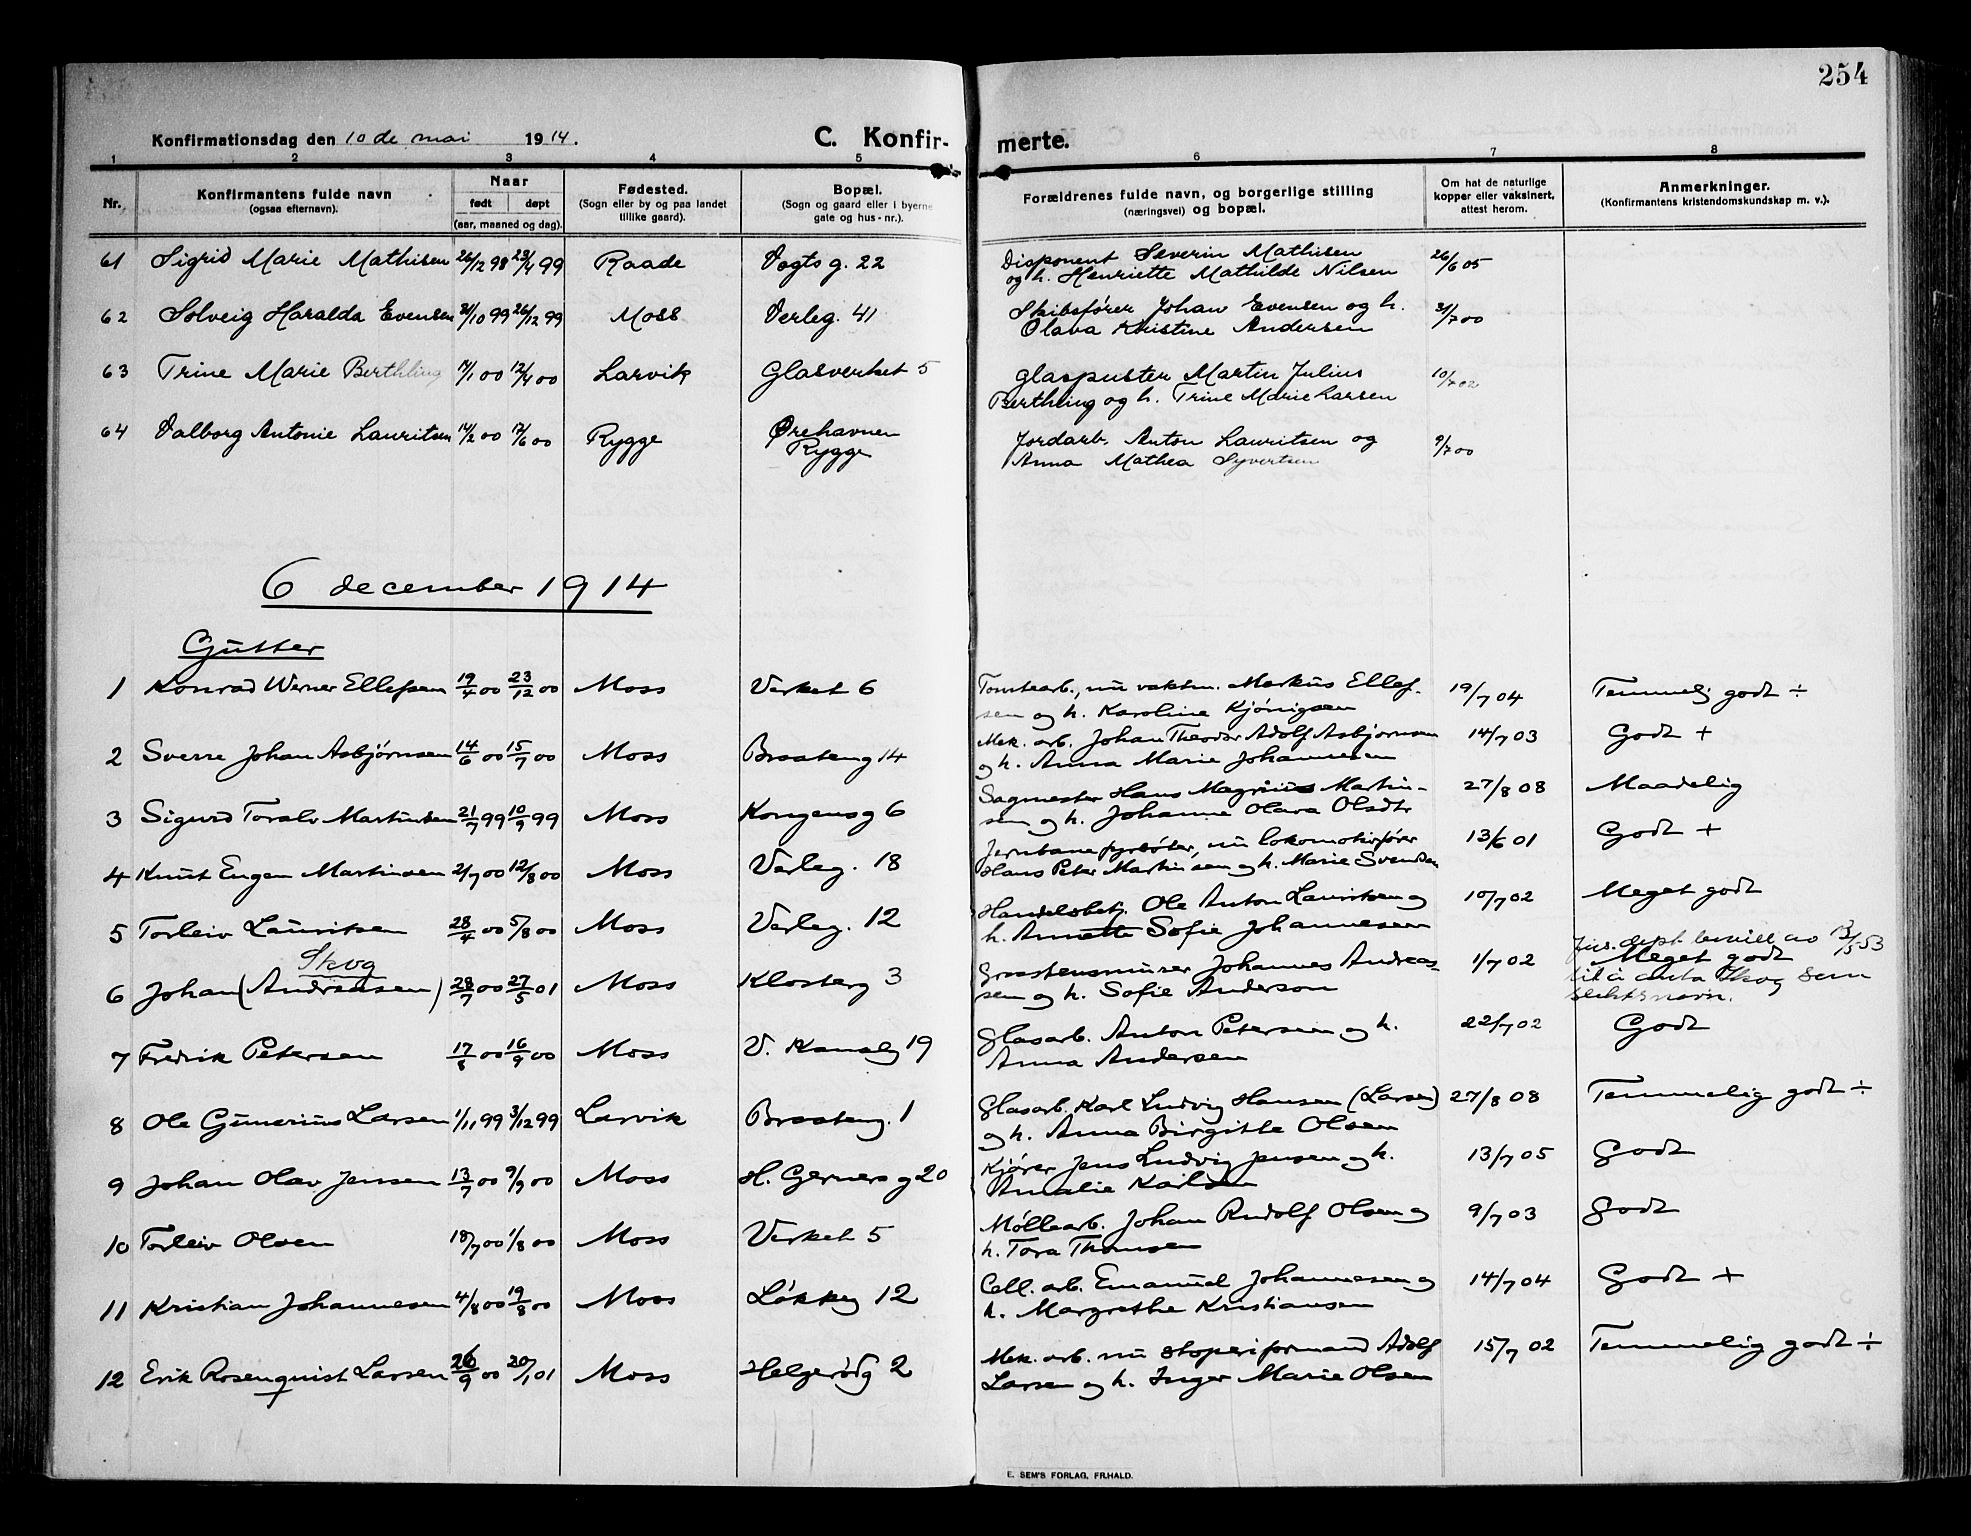 254
Konfirmationsdag den 10 de mai 1914. C. Konfir- merte.
1 2 3 4 5 6 7 8
Nr. Konfirmantens fulde navn (ogsaa efternavn). Naar født døpt (aar, maaned og dag). Fødested. (Sogn eller by og paa landet tillike gaard). Bopæl. (Sogn og gaard eller i byerne gate og hus-nr.). Forældrenes fulde navn, og borgerlige stilling (næringsvei) og bopæl. Om hat de naturlige kopper eller vaksinert, attest herom. Anmerkninger. (Konfirmantens kristendomskundskap m. v.).
61 Sigrid Marie Mathisen 26/12 98 23/4 99 Raade Vogts g. 22 Disponent Severin Mathisen 26/6 05
og h. Henriette Mathilde Nilsen
62 Solveig Haralda Evensen 31/10 99 26/12 99 Moss Verleg. 41 Skibsfører Johan Evensen og h. 31/7 00
Olava Kristine Andersen
63 Trine Marie Berthling 17/1 00 12/4 00 Larvik Glasverket 5 Glaspuster Martin Julius 10/7 02
Berthling og h. Trine Marie Larsen
64 Valborg Antonie Lauritsen 14/2 00 17/6 00 Rygge Ørehavnen Jordarb. Anton Lauritsen og 9/7 00
Rygge Anna Mathea Syvertsen
6 december 1914
Gutter
1 Konrad Werner Ellefsen 19/4 00 23/12 00 Moss Verket 6 Tomtearb., nu vaktm. Markus Ellef- 19/7 04 Temmelig godt ÷
sen og h. Karoline Kjønigsen
2 Sverre Johan Asbjørnsen 14/6 00 15/7 00 Moss Braateng 14 Mek. arb. Johan Theodor Adolf Asbjørnsen 14/7 03 Godt +
og h. Anna Marie Johannesen
3 Sigurd Toralv Martinsen 21/7 99 10/9 99 Moss Kongensg 6 Sagmester Hans Magnus Martin- 27/8 08 Maadelig
sen og h. Johanne Olava Olsdtr
4 Knut Eugen Martinsen 2/7 00 12/8 00 Moss Verleg. 18 Jernbanefyrbøter, nu lokomotivfører 13/6 01 Godt +
Hans Peter Martinsen og h. Marie Svendsen
5 Torleiv Lauritsen 28/4 00 5/8 00 Moss Verleg. 12 Handelsbetj. Ole Anton Lauritsen og 10/7 02 Meget godt
h. Annette Sofie Johannesen
Skog Jus. dept. bevill. av 13/5 53
6 Johan (Andreasen) 28/7 00 27/5 01 Moss Klosterg 3 Graastensmurer Johannes Andreas- 1/7 02 Meget godt
sen og h. Sofie Anderson til å anta Skog som
slektsnavn.
7 Fredrik Petersen 17/8 00 16/9 00 Moss V. Kanalg 19 Glasarb. Anton Petersen og h. 22/7 02 Godt
Anna Andersen
8 Ole Gunerius Larsen 1/11 99 3/12 99 Larvik Braateng. 1 Glasarb. Karl Ludvig Hansen (Larsen) 27/8 08 Temmelig godt ÷
og h. Anna Birgitte Olsen
9 Johan Olav Jensen 13/7 00 9/9 00 Moss H. Gerners g 20 Kjører Jens Ludvig Jensen og h. 13/7 05 Godt
Amalie Karlsen
10 Torleiv Olsen 18/7 00 1/8 00 Moss Verket 5 Møllearb. Johan Rudolf Olsen og 9/7 03 Godt
h. Tora Thomsen
11 Kristian Johannesen 4/8 00 19/8 00 Moss Løkkeg 12 Cell. arb. Emanuel Johannesen og 14/7 04 Godt +
h. Margrethe Kristiansen
12 Erik Rosenquist Larsen 26/9 00 20/1 01 Moss Helgerødg 2 Mek. arb. nu støperiformand Adolf 15/7 02 Temmelig godt ÷
Larsen og h. Inger Marie Olsen
E. SEM'S FORLAG, FR.HALD.